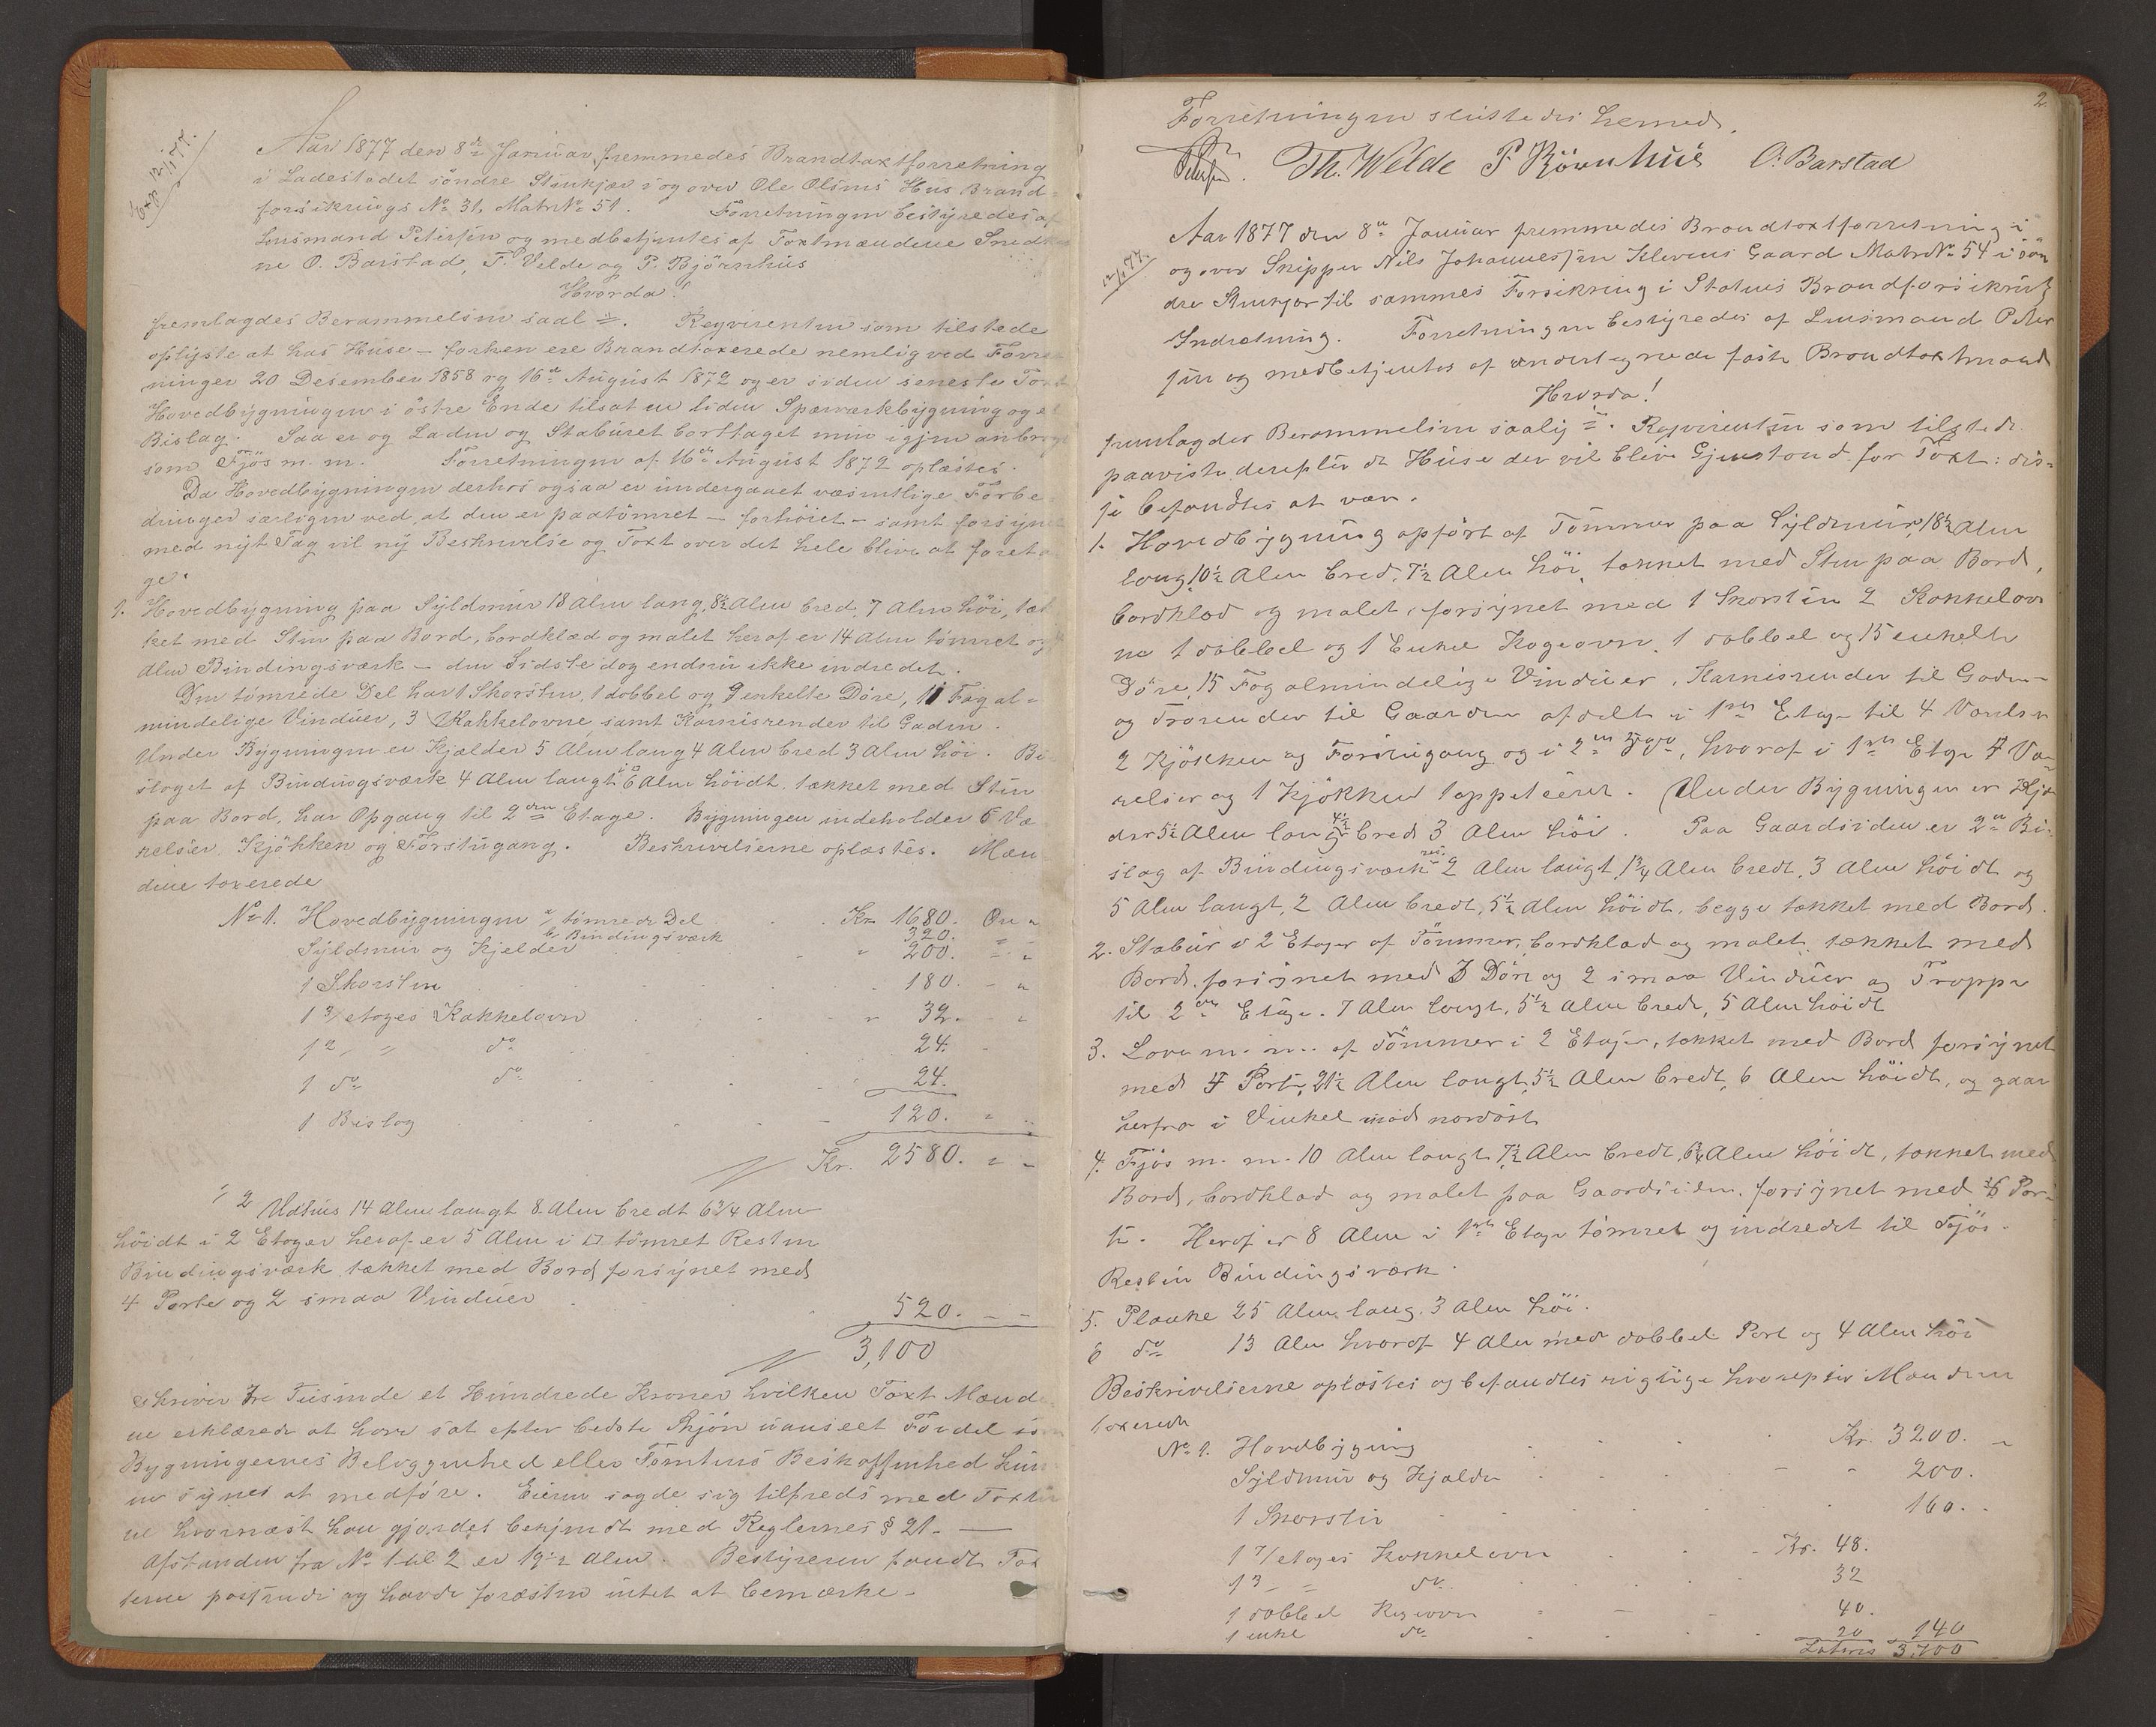 Exp 12/1 77.
Aar 1877 den 8de Januar fremmedes Brandtaxtforretning
i Ladestedet söndre Stenkjær i og over Ole Olsens Hus Brand=
forsikrings No 31, Matr No 51. Forretningen bestyredes af
Lensmand Petersen og medbetjentes af Taxtmændene
O. Barstad, T. Velde og P. Björnhus
Hvorda!
fremlagdes Berammelsen saal. Reqvirenten som tilstede
oplyste at has Huse – forhen ere Brandtaxerede nemlig ved Forret
ninger 20 Desember 1858 og 16de August 1872 og er siden seneste Taxt
Hovedbygningen i östre Ende tilsat en liden Spærværkbygning og et
Bislag. Saa er og Laden og Staburet borttaget men igjen anbragt
som Fjös m. m. Forretningen af 16de August 1872 oplæstes.
Da Hovedbygningen derhos ogsaa er undergaaet væsentlige Forbe=
dringer særligen ved at den er paatömret – forhöiet – samt forsynet
med nyt Tag vil ny Beskrivelse og Taxt over det hele blive at foreta
ge.
1. Hovedbygning paa Syldmur 18 Alen lang, 8½ Alen bred, 7 Alen höi, tæk
ket med Sten paa Bord, bordklæd og malet heraf er 14 Alen tömret og
Alen Bindingsværk – den Sidste dog endnu ikke indredet.
Den tömrede Del har 1 Skorsten, 1 dobbel og 9 enkelte Döre, 11 Fag al=
mindelige Vinduer, 3 Kakkelovne, samt Karnisrender til Gaden.
Under Bygningen er Kjælder 5 Alen lang 4 Alen bred 3 Alen höi. Bi
slaget af Bindingsværk 4 Alen langt 6 Alen höidt, tækket med Sten
paa Bord, har Opgang til 2den Etage. Bygningen indeholder 6 Væ
relser, Kjökken og Forstugang. Beskrivelserne oplæstes. Mæn
dene taxerede
No 1. Hovedbygningen a/ tömrede Del Kr. 1680. Öre "
b. Bindingsværk 320.
Syldmur og Kjelder " 200. " "
1 Skorsten 180. - "
1 3/etages Kakkelovn " 32. - "
1 2/ " do 24. -
1 do do 24.
1 Bislag 120. " "
Kr. 2580. " "
2 Udhus 14 Alen langt 8. Alen bredt 6¾ Alen
höidt i 2 Etager heraf er 5 Alen i □ tömret Resten
Bindingsværk tækket med Bord forsynet med
4 Porte og 2 smaa Vinduer 520. - -
3,100
skriver Tre Tusinde et Hundrede Kroner hvilken Taxt Mænde
ne erklærede at have sat efter bedste Skjön uanseet Fordel som
Bygningernes Beliggenhed eller Tomtens Beskaffenhed kun
ne synes at medföre. Eieren sagde sig tilfreds med Taxte
ne hvornæst han gjordes bekjendt med Reglernes § 21. —
Afstanden fra No 1 til 2 er 19½ Alen. Bestyreren fandt Tax
terne passende og havde foræsten intet at bemærke.
2.
Forretningen sluttedes hermed.
Petersen. Th. Welde P. Björnhus O. Barstad
12/1 77.
Aar 1877 den 8de Januar fremmedes Brandtaxtforretning i
og over Skipper Nils Johannessen Klevens Gaard Matr No 54 i sön
dre Stenkjær til sammes Forsikring i Statens Brandforsikrings
Indretning. Forretningen bestyredes af Lensmand Peter
sen og medbetjentes af undertegnede faste Brandtaxtmænd
Hvorda!
fremlagdes Berammelsen saalyd. Reqvirenten som tilstede
paaviste derefter de Huse der vil blive Gjenstand for Taxt: dis=
se befandtes at være.
1. Hovedbygning opfört af Tömmer paa Syldmur, 18½ Alen
lang, 10½ Alen bred, 7½ Alen höi, tækket med Sten paa Bord,
bordklæd og malet, forsynet med 1 Skorsten 2 Kakkelov
ne 1 dobbel og 1 Enkel Kogeovn, 1 dobbel og 15 enkelte
Döre, 15 Fag almindelige Vinduer, Karnisrender til Gaden-
og Trærender til Gaarden afdelt i 1ste Etage til 4 Værelser
2 Kjökken og Forstugang og i 2den , hvoraf i 1ste Etage 4 Væ
relser og 1 Kjökken tappetseret. Under Bygningen er Kjæl
der 5½ Alen lang 4½ bred 3 Alen höi. Paa Gaardsiden er 2de Bi-
slag af Bindingsværk 2 Alen langt, 1¾ Alen bredt, 3 Alen höidt og
5 Alen langt, 2 Alen bredt, 5½ Alen höidt, begge tækket med Bord.
2. Stabur i 2 Etager af Tömmer, bordklæd og malet, tækket med
Bord, forsynet med 3 Döre og 2 smaa Vinduer og Trappe
til 2den Etage. 7 Alen langt, 5½ Alen bredt, 5 Alen höidt
3. Lave m. m. af Tömmer i 2 Etager, tækket med Bord forsynet
med 4 Porte, 21½ Alen langt, 5½ Alen bredt, 6 Alen höidt, og gaar
herfra i Vinkel mod nordöst
4. Fjös m. m. 10 Alen langt 7½ Alen bredt, 6¾ Alen höidt, tækket med
Bord, bordklæd og malet paa Gaardsiden, forsynet med 6 Por-
te. Heraf er 8 Alen i 1ste Etage tömret og indredet til Fjös.
Resten Bindingsværk.
5. Planke 25 Alen lang, 3 Alen höi.
6 do 13 Alen hvoraf 4 Alen med dobbel Port og 4 Alen höi
Beskrivelserne oplæstes og befandtes rigtige hvorefter Mændene
taxerede
No 1. Hovedbygning Kr. 3200. "
Syldmur og Kjælder " " 200.
1 Skorsten 160. -
1 7/etages Kakkelovn Kr. 48.
1 3- " do 32
1 dobbel Kogeovn 40.
1 enkel do 20 140
Lateris 3,700